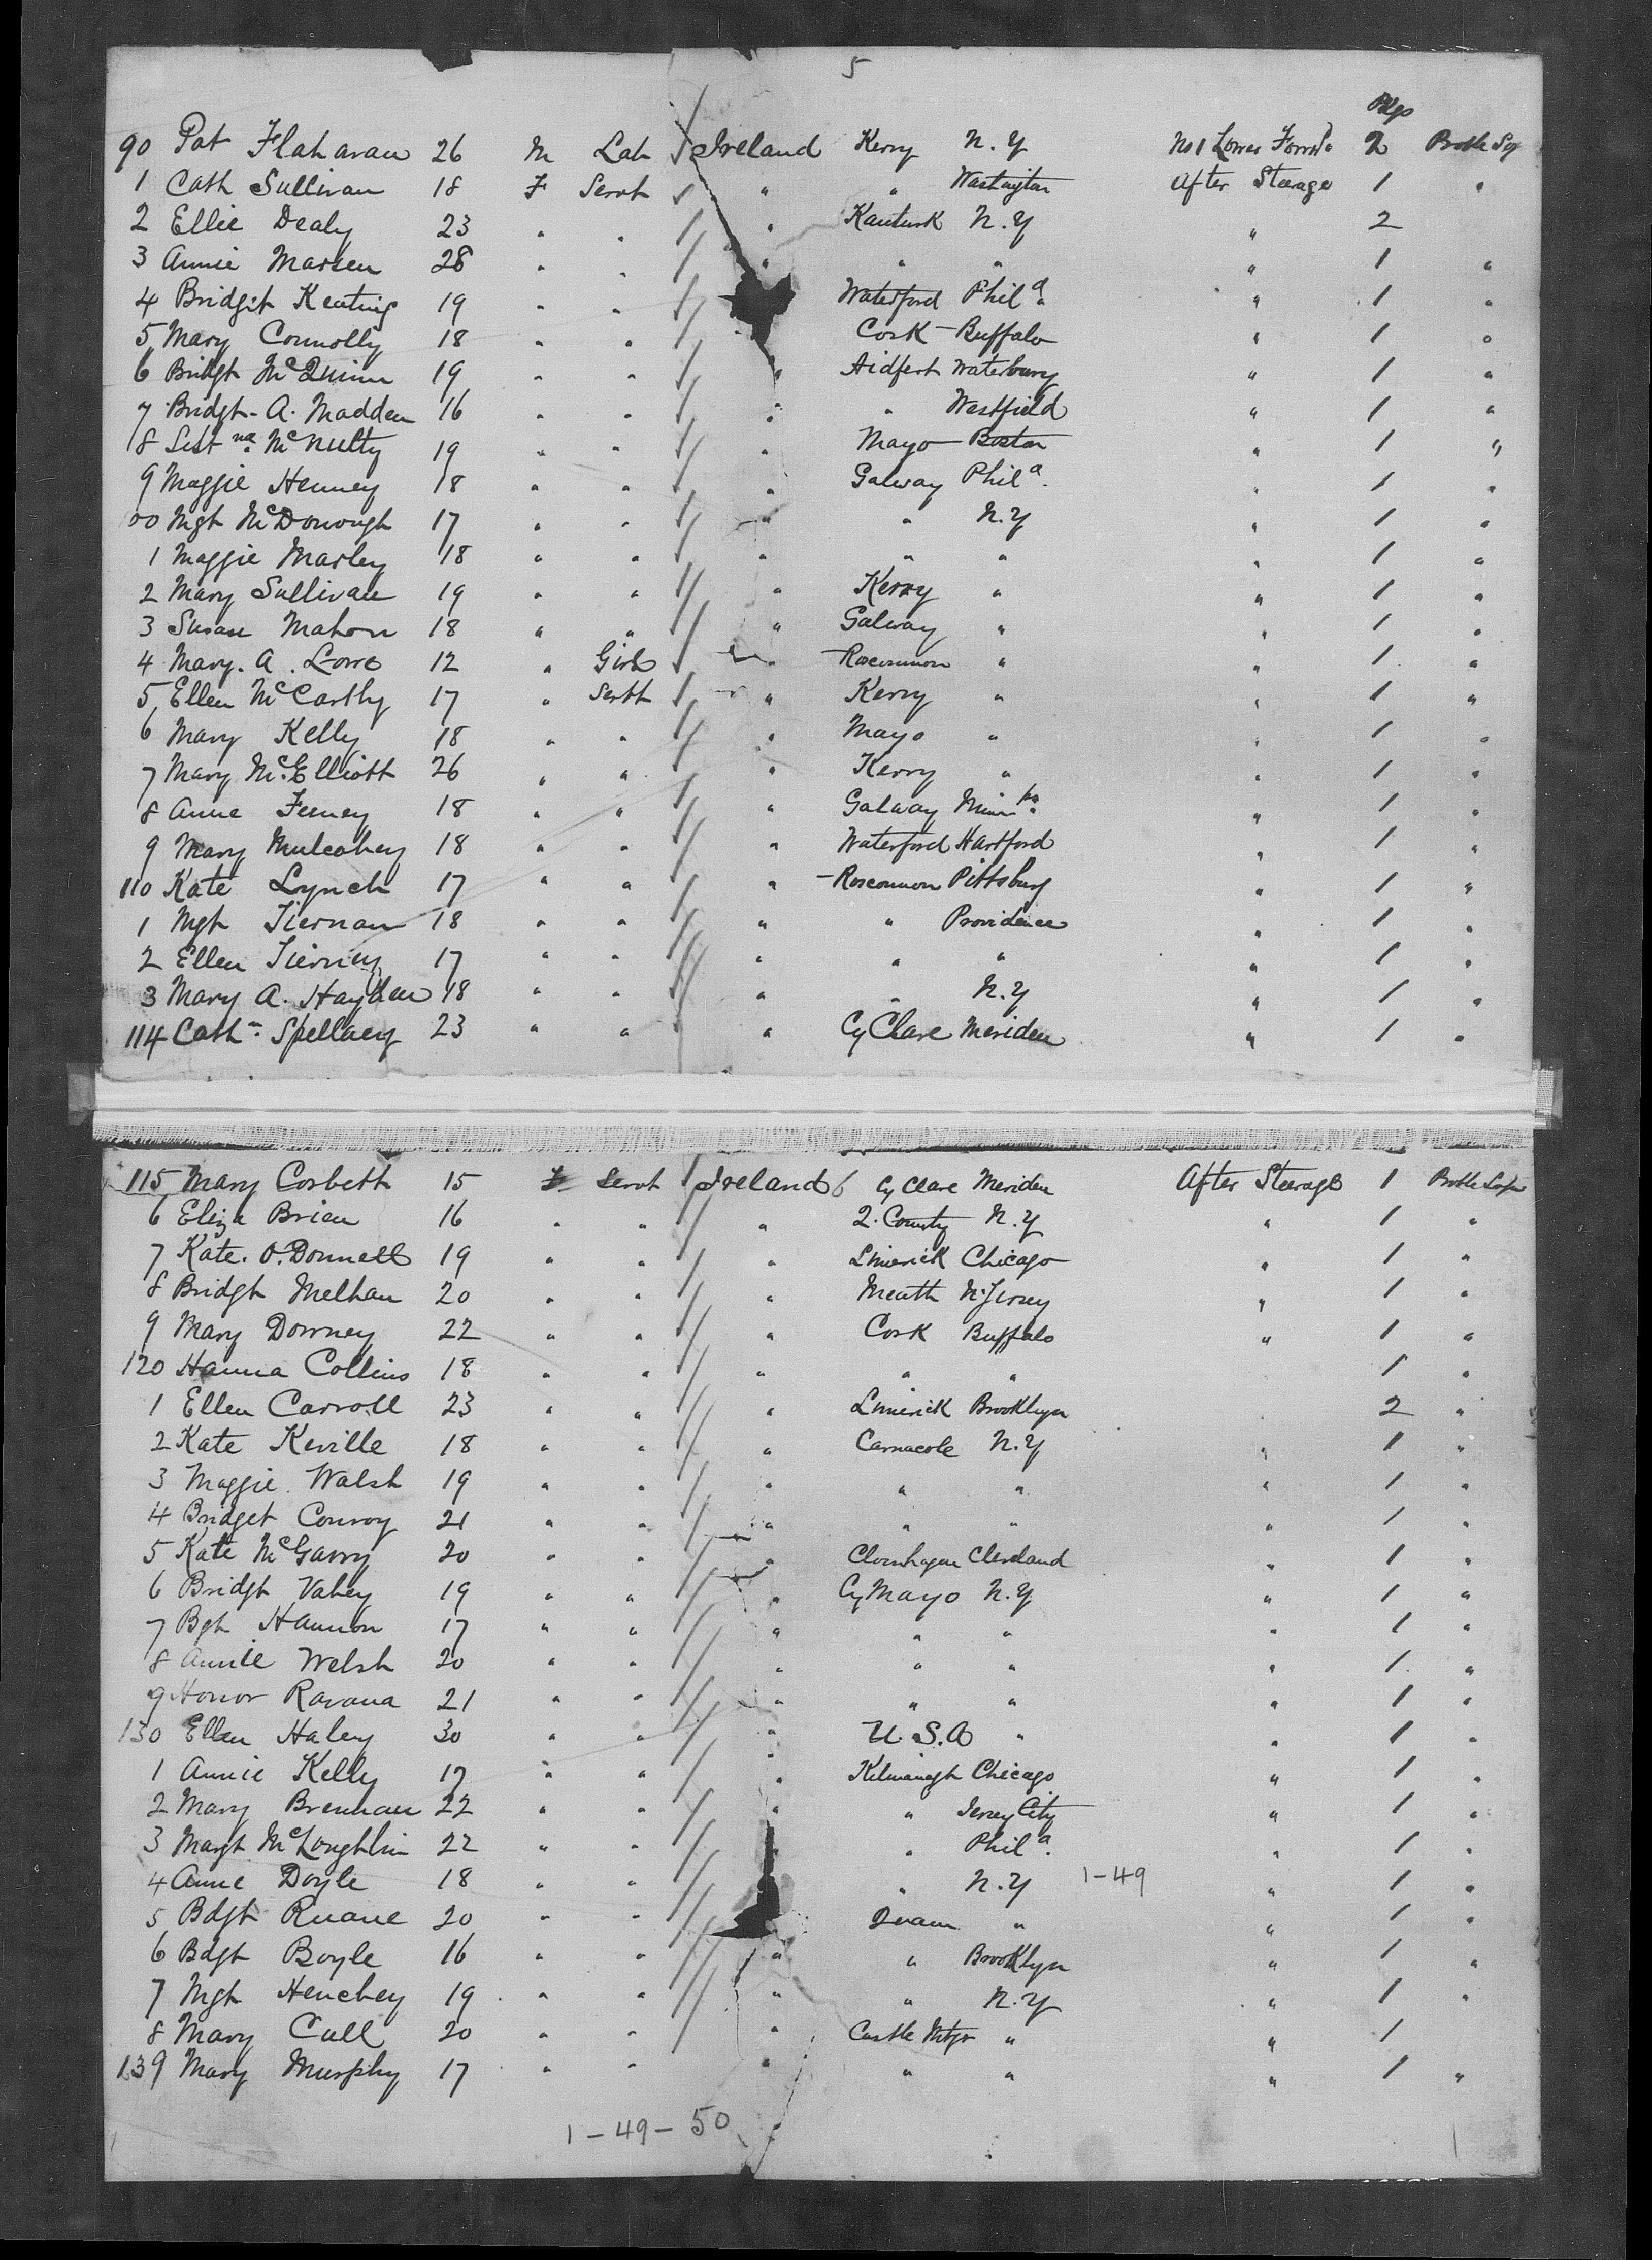 5
Pkgs
90 Pat Flahavan 26 M Lab Ireland Kerry N.Y No 1 Lower Forwd 2 Protr Sj
1 Cath Sullivan 18 F Servt " " Washington After Steerage 1 "
2 Ellie Dealy 23 " " " Kanturk N.Y " 2
3 Annie Marren 28 " " " " " " 1 "
4 Bridgit Keating 19 " " Waterford Phila " 1 "
5 Mary Connolly 18 " " Cork Buffalo " 1 "
6 Bridgt McQuinn 19 " " " Ardfert Waterbury " 1 "
7 Bridgt A. Madden 16 " " " " Westfield " 1 "
8 McNulty 19 " " " Mayo Boston " 1 "
9 Maggie Henney 18 " " " Galway Phila. " 1 "
00 Mgt McDonough 17 " " " " N.Y " 1 "
1 Maggie Marley 18 " " " " " " 1 "
2 Mary Sullivan 19 " " " Kerry " " 1 "
3 Susan Mahon 18 " " " Galway " " 1 "
4 Mary. A. Lowe 12 " Girl " Roscommon " " 1 "
5 Ellen McCarthy 17 " Servt " Kerry " " 1 "
6 Mary Kelly 18 " " " Mayo " " 1 "
7 Mary McElliott 26 " " " Kerry " " 1 "
8 Anne Feeney 18 " " " Galway " 1 "
9 Mary Mulcahey 18 " " " Waterford Hartford " 1 "
110 Kate Lynch 17 " " " Roscommon Pittsburg " 1 "
1 Mgt Tiernan 18 " " " " Providence " 1 "
2 Ellen Tierney 17 " " " " " " 1 "
3 Mary A. Hayden 18 " " " " N.Y " 1 "
114 Cath Spellacy 23 " " " Cy Clare Meriden " 1 "
115 Mary Corbett 15 F Servt Ireland 6 Cy Clare Meriden After Steerage 1
6 Eliza Brien 16 " " " Q. County N.Y " 1 "
7 Kate. O.Donnell 19 " " " Limerick Chicago " 1 "
8 Bridgt Melhan 20 " " " Meath N.Jersey " 1 "
9 Mary Downey 22 " " " Cork Buffalo " 1 "
120 Hanna Collins 18 " " " " " 1 "
1 Ellen Carroll 23 " " " Limerick Brooklyn 2 "
2 Kate Keville 18 " " " Carnacole N.Y " 1 "
3 Maggie Walsh 19 " " " " " " 1 "
4 Bridget Conroy 21 " " " " " " 1 "
5 Kate McGarry 20 " " " Cleveland " 1 "
6 Bridgt Vahey 19 " " " Cy Mayo N.Y " 1 "
7 Bgt Hannon 17 " " " " " " 1 "
8 Annie Welsh 20 " " " " " " 1 "
9 Honor Ravana 21 " " " " " " 1 "
130 Ellen Haley 30 " " " U.S.A " " 1 "
1 Annie Kelly 17 " " " Kilmanagh Chicago " 1 "
2 Mary Brennan 22 " " " " Jersey City " 1 "
3 Margt McLoughlin 22 " " " Phila. " 1 "
4 Anne Doyle 18 " " " N.Y 1-49 " 1 "
5 Bdgt Ruane 20 " " " " 1 "
6 Bdgt Boyle 16 " " " " Brooklyn " 1 "
7 Mgt Henehey 19 " " " " N.Y " 1 "
8 Mary Cull 20 " " " Castle " " 1
139 Mary Murphy 17 " " " " " " 1 "
1-49-50